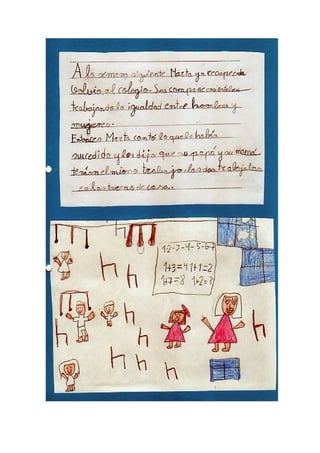 A la semana siguiente Marta ya recuperada
volvió al colegio. Sus compañeros estaban
trabajando la igualdad entre hombres y
mujeres.
Entonces Marta contó lo que le había
sucedido y les dijo que su papá y su mamá
tenían el mismo trabajo los dos trabajaban
en las tareas de casa.
1-2-3-4-5-6-7
1+3=4 1+1=2
1+7=8 1+2=3